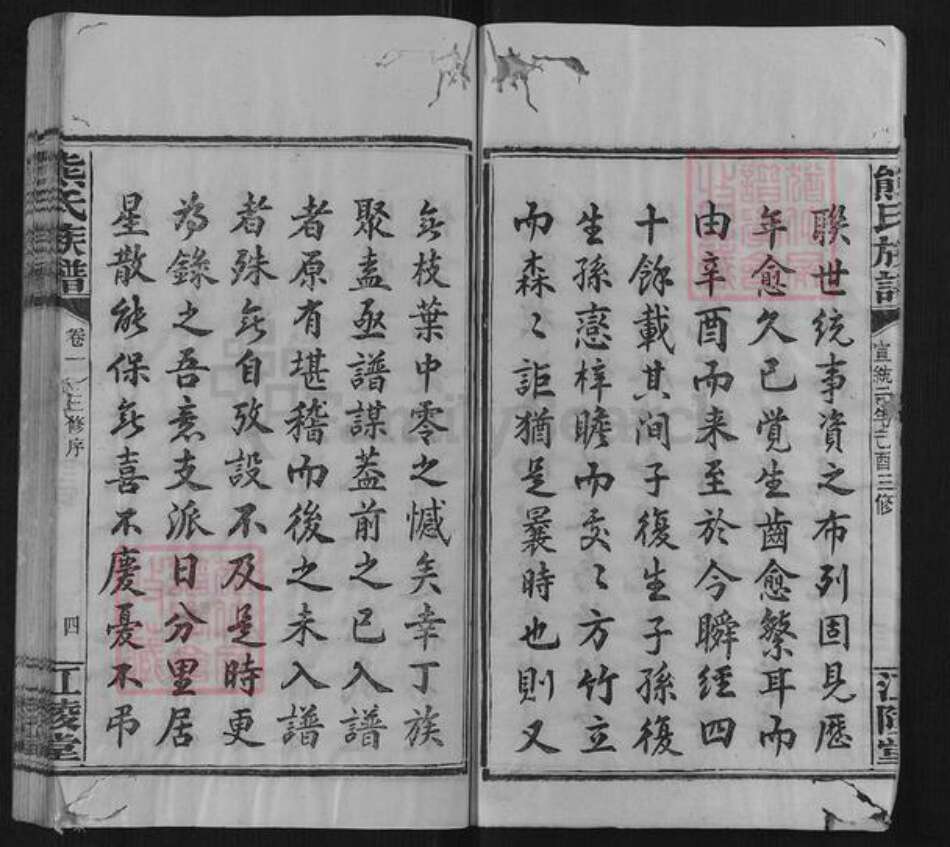 熊氏族譜
宣統元年己酉三修
江陵堂
聯世統事資之布列固見歷
年愈久已覺生齒愈繁耳而
由辛酉而来至於今瞬經四
十餘載其间子復生子孫復
生孫喬梓瞻而爻〻方竹立
而森〻詎猶是曩時也則又
無枝葉中零之憾矣幸丁族
聚盍亟譜謀葢前之已入譜
者原有堪稽而後之未入譜
者殊無自攷設不及是時更
為錄之吾意支派日分里居
星散能保無喜不慶憂不弔
熊氏族譜
卷一
三修序
四
江陵堂
FamilySearch